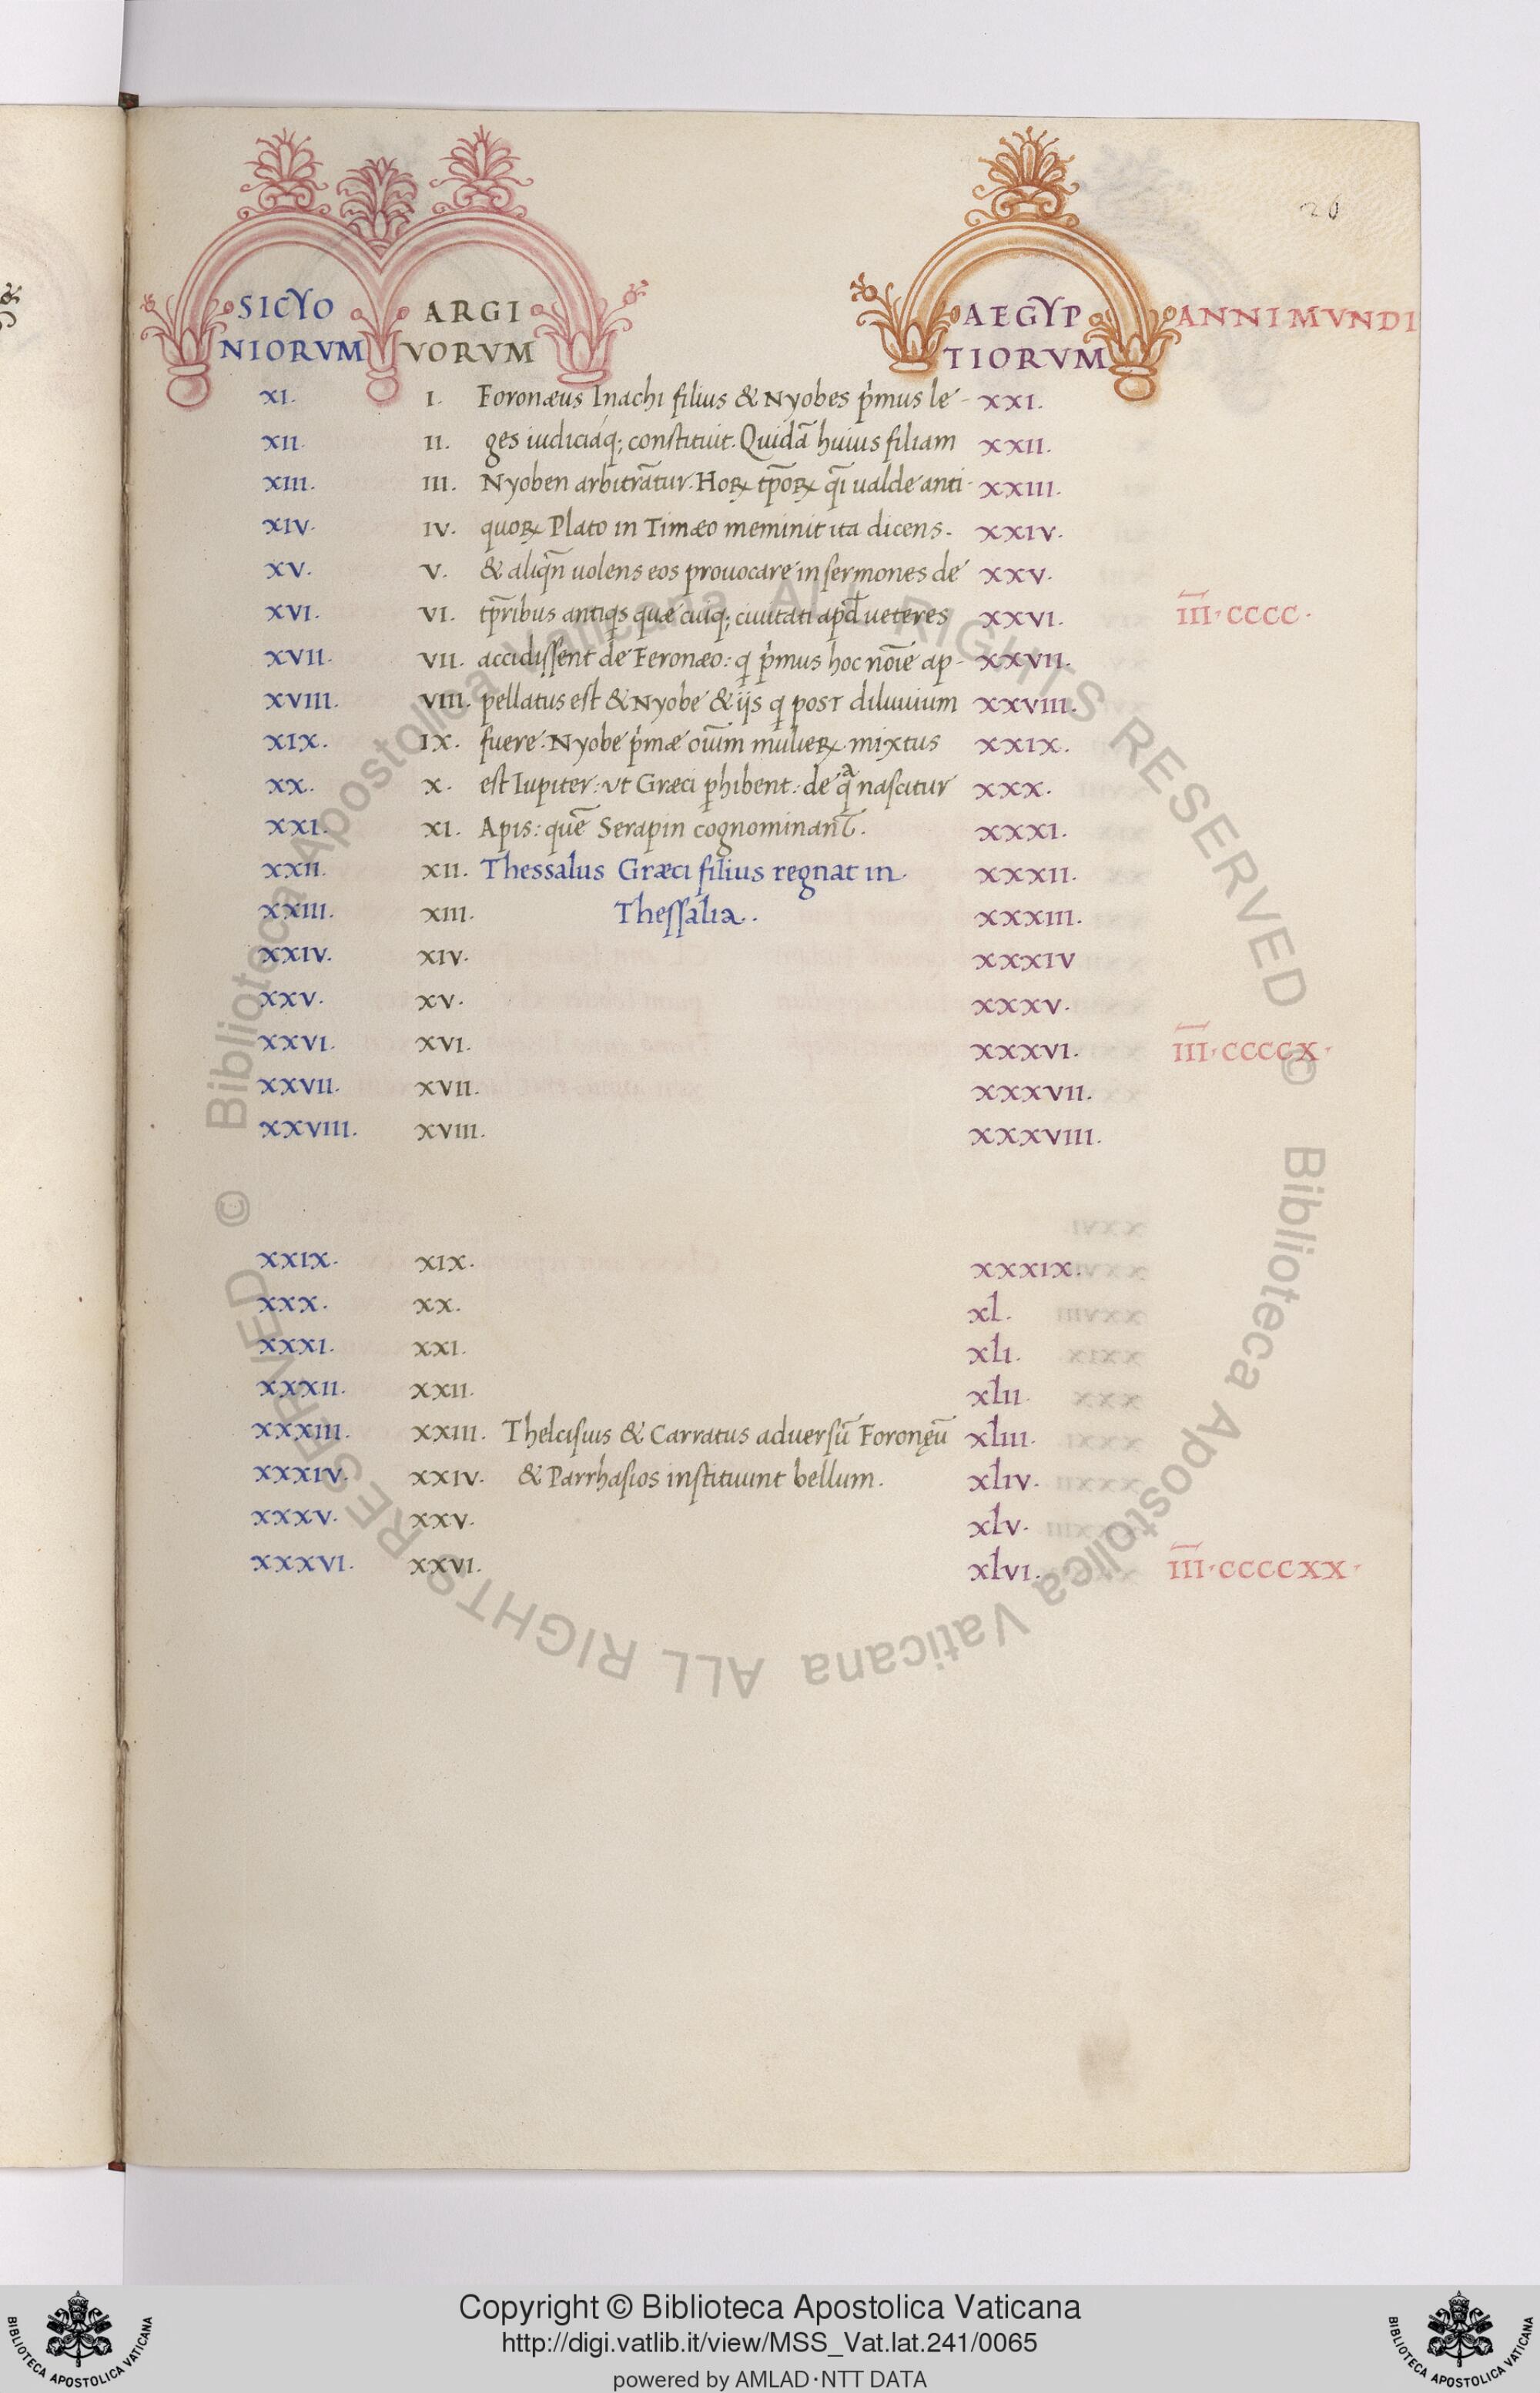 26
SICYO ARGI AEGYP ANNI MVNDI
NIORVM VORVM TIORVM
XI. I. Foronæus Inachi filius & Nyobes p̍mus le- XXI.
XII. II. ges iudiciáq; constituit. Quidā huius filiam XXII.
XIII. III. Nyoben arbitrāt̄ur. Hoꝝ tp̄oꝝ q̄ı ualde anti- XXIII.
XIV. IV. quoꝝ Plato in Timæo meminit ita dicens. XXIV.
XV. V. & aliqn̄ uolens eos prouocare in sermones de XXV.
XVI. VI. tp̄ribus antiqs quæ cuiq; ciuitati apd̄ ueteres XXVI. I̅I̅I̅·CCCC·
XVII. VII. accidissent de Feronæo: q p̍mus hoc noı̄e ap- XXVII.
XVIII. VIII. pellatus est & Nyobe & ijs q post diluuium XXVIII.
XIX. IX. fuere. Nyobe p̍mæ oıūm mulieꝝ mixtus XXIX.
XX. X. est Iupiter: vt Græci ꝑhibent: de qᵃ nascitur XXX.
XXI. XI. Apis: quē Serapin cognominant̄. XXXI.
XXII. XII. Thessalus Græci filius regnat in XXXII.
XXIII. XIII. Thessalia. XXXIII.
XXIV. XIV. XXXIV
XXV. XV. XXXV.
XXVI. XVI. XXXVI. I̅I̅I̅·CCCCX·
XXVII. XVII. XXXVII.
XXVIII. XVIII. XXXVIII.
XXIX. XIX. XXXIX.
XXX. XX. xl.
XXXI. XXI. xlı.
XXXII. XXII. xlıı.
XXXIII. XXIII. Thelcisius & Carratus aduersū Foronęū xlııı.
XXXIV. XXIV. & Parrhasios instituunt bellum. xlıv.
XXXV. XXV. xlv.
XXXVI. XXVI. xlvı. I̅I̅I̅·CCCCXX·
© Biblioteca Apostolica Vaticana ALL RIGHTS RESERVED
© Biblioteca Apostolica Vaticana ALL RIGHTS RESERVED
Copyright © Biblioteca Apostolica Vaticana
http://digi.vatlib.it/view/MSS_Vat.lat.241/0065
powered by AMLAD·NTT DATA
BIBLIOTECA APOSTOLICA VATICANA
BIBLIOTECA APOSTOLICA VATICANA